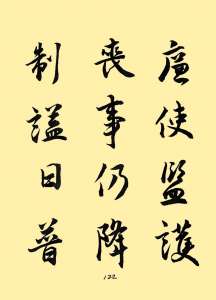 廉使監護
喪事仍降
制諡曰普
122